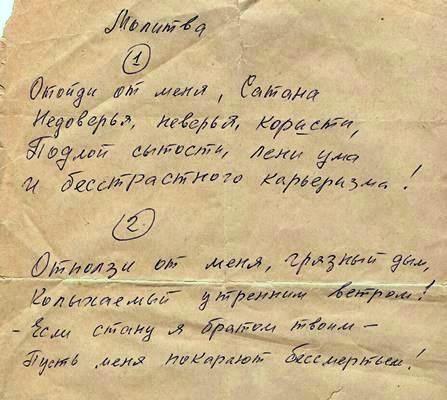 Молитва
1
Отойди от меня, Сатана
Недоверья, неверья, корысти,
Подлой сытости, лени ума
и бесстрастного карьеризма!
2.
Отползи от меня, грязный дым,
Колыхаемый утренним ветром!
- Если стану я братом твоим -
Пусть меня покарают бессмертьем!